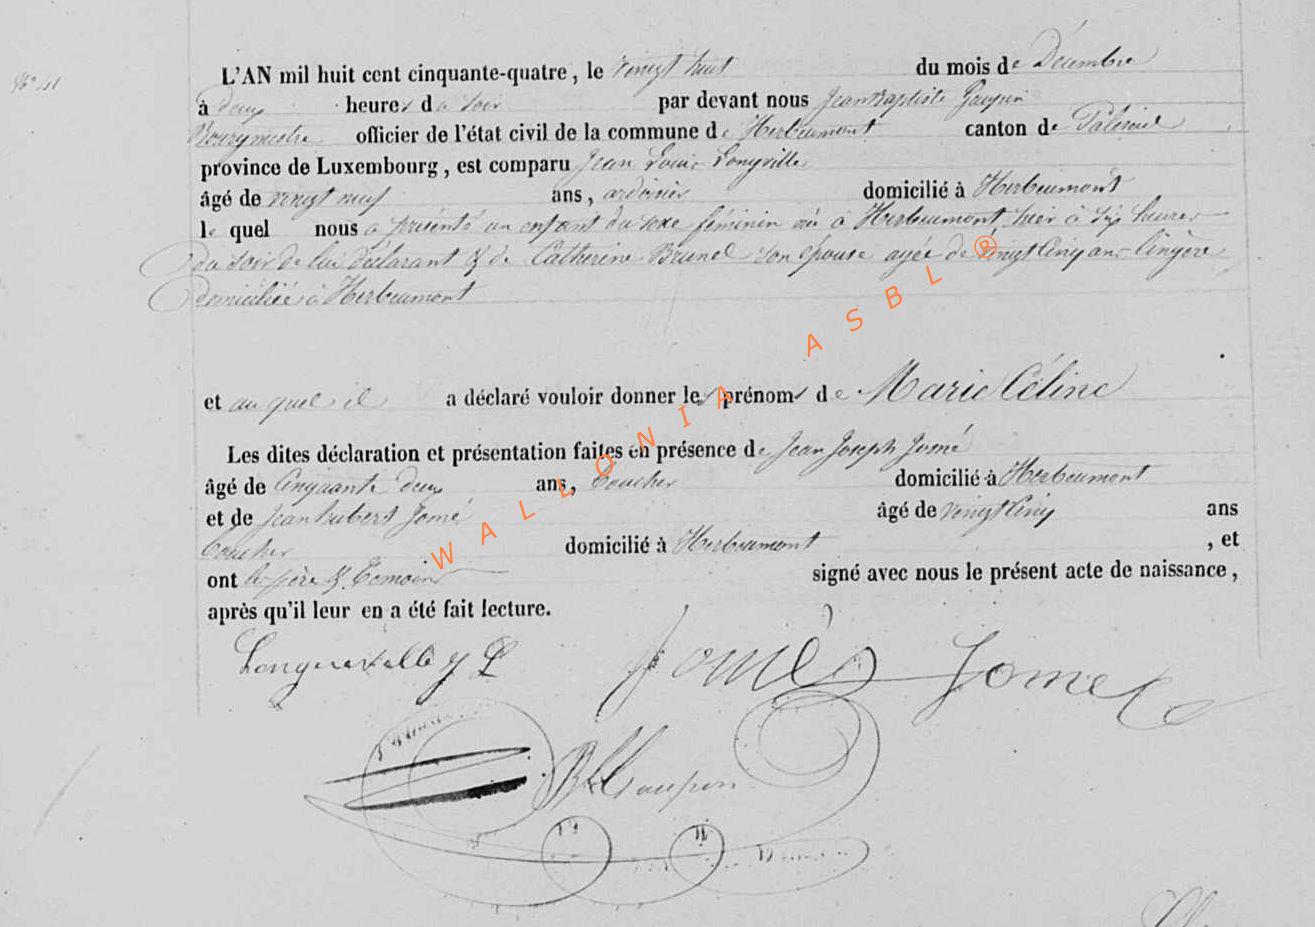 N° 41
L'AN mil huit cent cinquante-quatre, le vingt huit du mois de Décembre
à deux heures du soir par devant nous Jean Baptiste Gaupin
Bourgmestre officier de l'état civil de la commune de Herbeumont canton de Paliseul
province de Luxembourg, est comparu Jean Louis Longville
âgé de vingt neuf ans, ardoisier domicilié à Herbeumont
le quel nous a présenté un enfant du sexe féminin née à Herbeumont, hier à six heures
du soir de lui déclarant & de Catherine Brunel son épouse agée de vingt cinq ans lingère
domiciliée à Herbeumont
et au quel il a déclaré vouloir donner les prénoms de Marie Céline
Les dites déclaration et présentation faites en présence de Jean Joseph Jomé
âgé de Cinquante deux ans, domicilié à Herbeumont
et de Jean hubert Jomé âgé de vingt cinq ans
domicilié à Herbeumont, et
ont le père & Temoins signé avec nous le présent acte de naissance,
après qu'il leur en a été fait lecture.
Jomé Jomé
Gaupin
WALLONIA ASBL ®